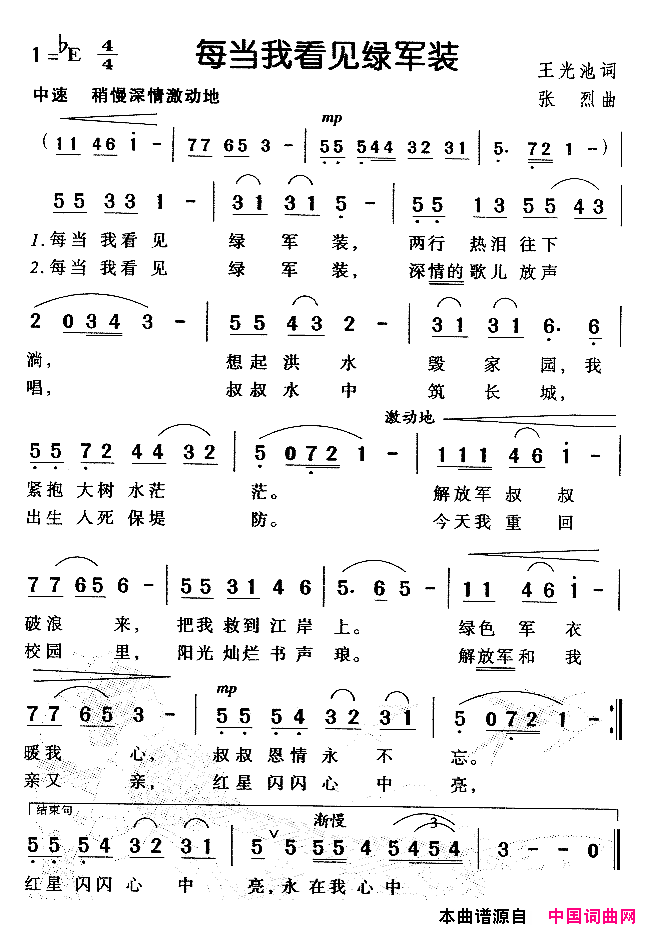 1=♭E 4/4 每当我看见绿军装
王光池词
中速 稍慢深情激动地
张 烈曲
mp
(11 46 i -|77 65 3 -|55 544 32 31|5. 72 1 -)|
55 33 1 -|31 31 5 -|55 13 55 43|
1.每当 我看 见 绿 军 装, 两行 热泪 往下
2.每当 我看 见 绿 军 装, 深情的 歌儿 放声
2 034 3 -|55 43 2 -|31 31 6. 6|
淌, 想起 洪 水 毁 家 园,我
唱, 叔叔 水 中 筑 长 城,
激动地
55 72 44 32|5 0721 -|111 46 i -|
紧抱 大树 水茫 茫。 解放军 叔 叔
出生 入死 保堤 防。 今天我 重 回
77 65 6 -|55 31 4 46|5. 65 -|11 46 i -|
破浪 来, 把我 救到 江 岸 上。 绿色 军 衣
校园 里, 阳光 灿烂 书 声 琅。 解放军和 我
mp
77 65 3 -|55 54 32 31|5 0721 -:|
暖我 心, 叔叔 恩情 永 不 忘。
亲又 亲, 红星 闪闪 心 中 亮,
结束句 渐慢 3
55 54 32 31|5 ∨ 5 55 4 5454|3 - - 0‖
红星 闪闪 心 中 亮,永 在我 心中
本曲谱源自 中国词曲网